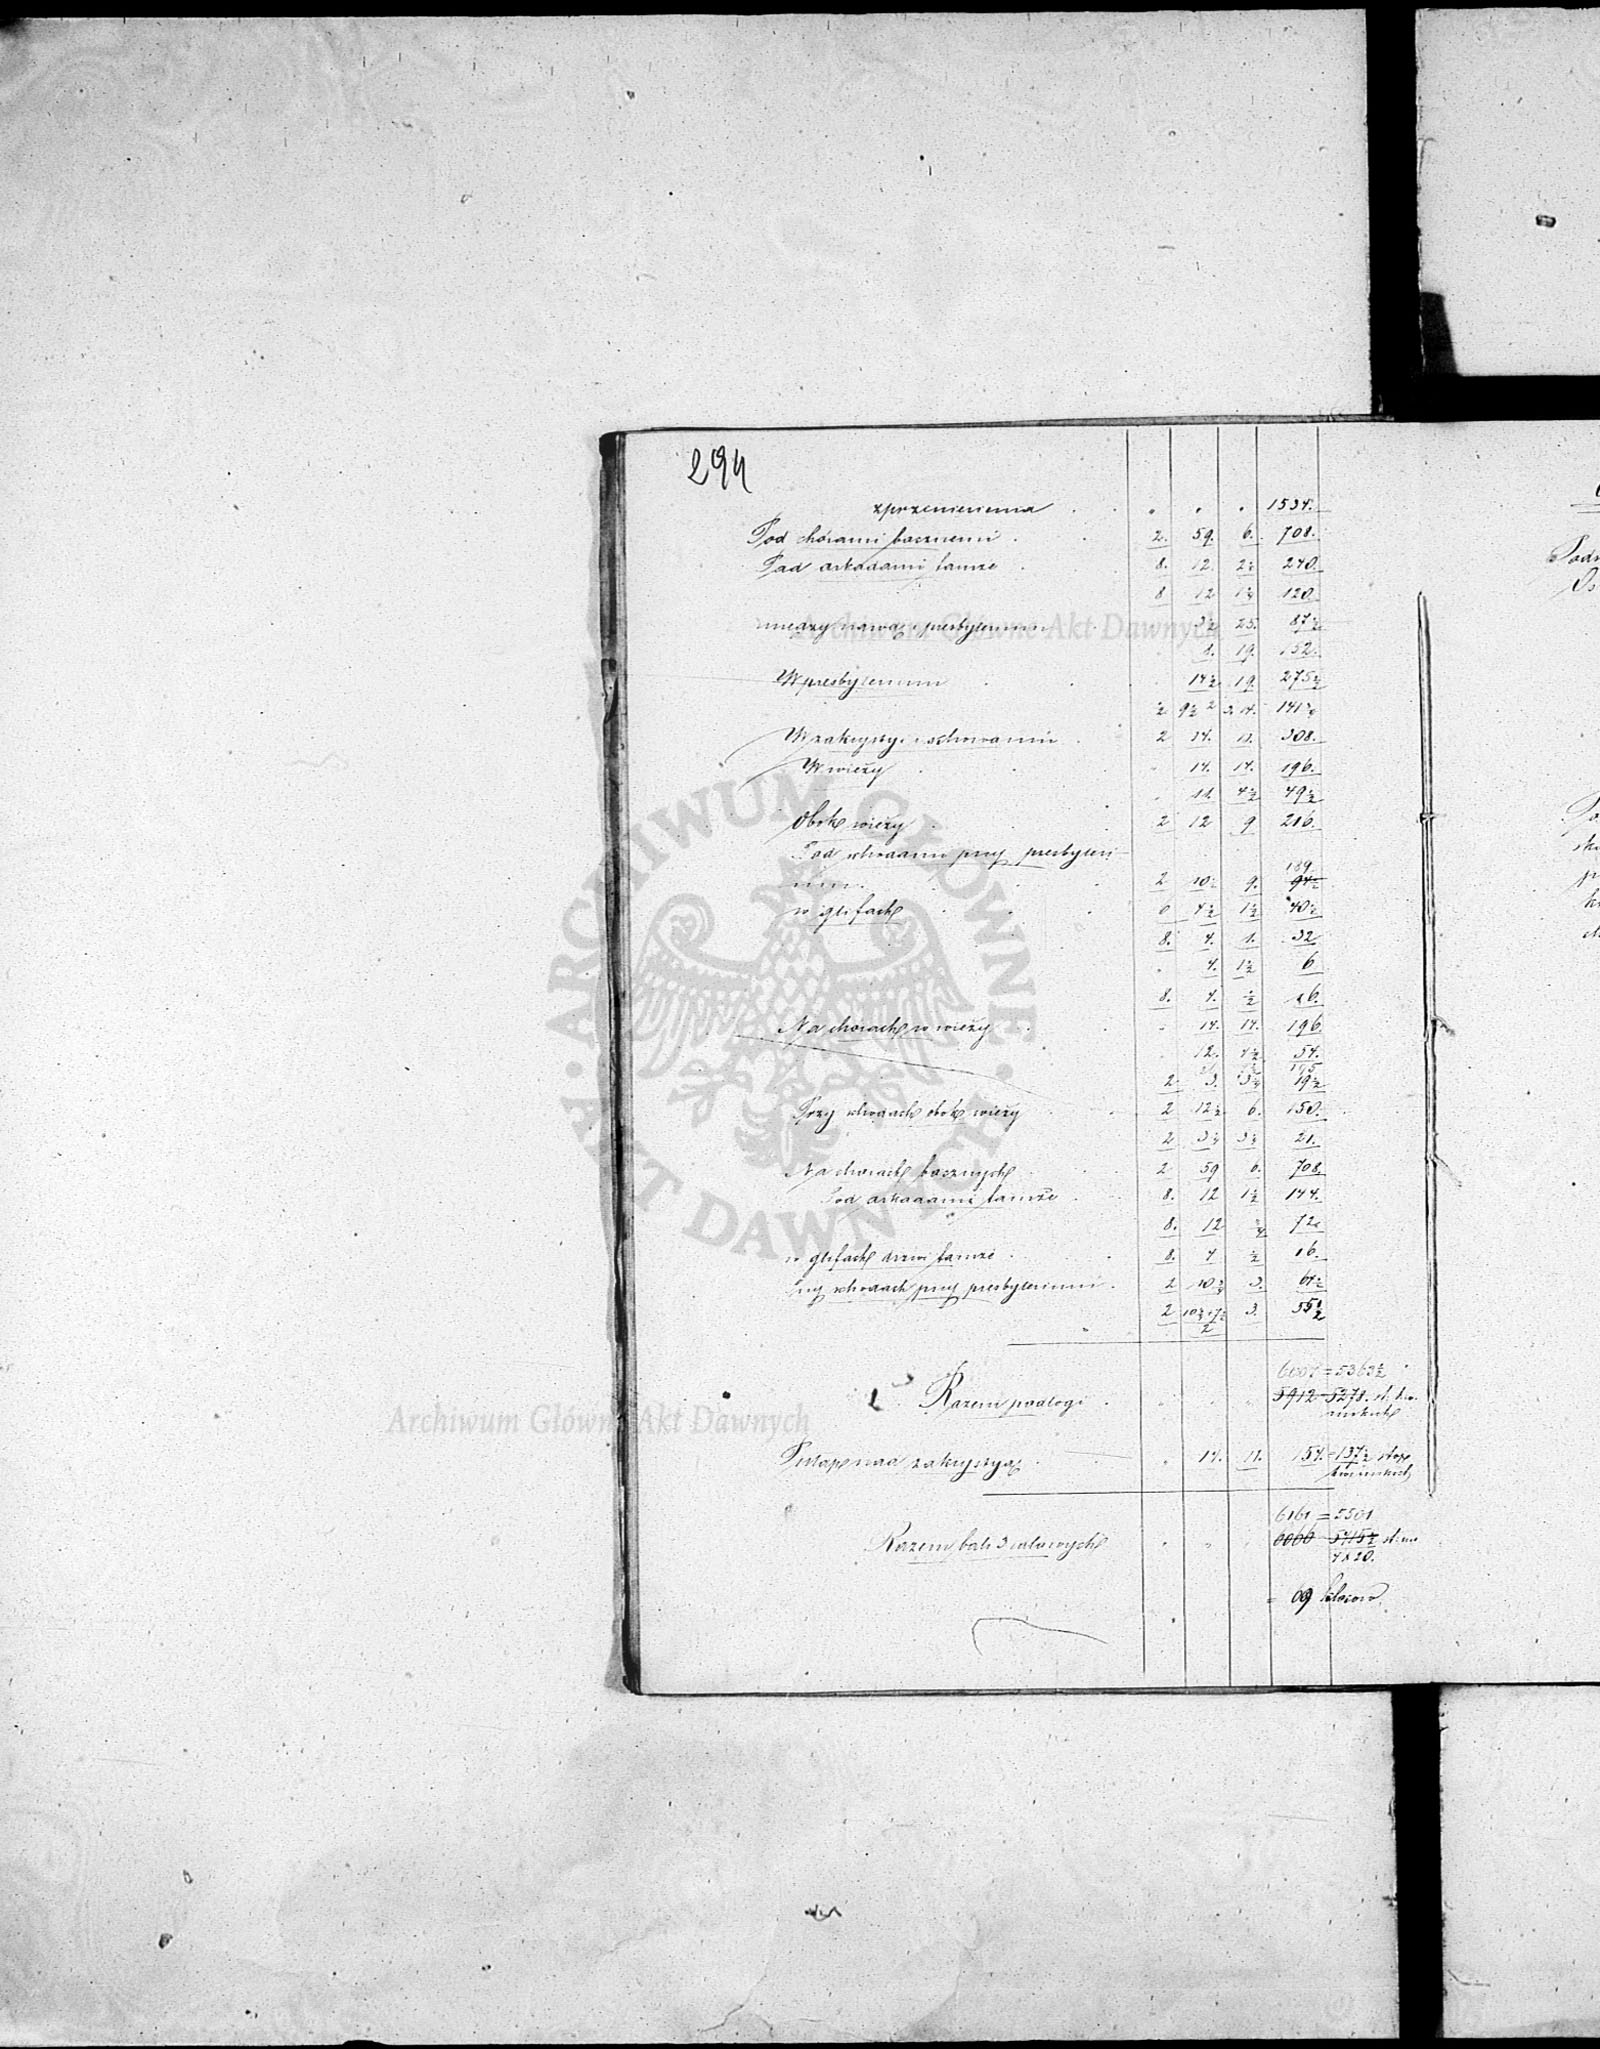 294
z przeniesienia " " " 1534.
Pod chórami bocznemi . 2. 59. 6. 708.
Pod arkadami tamże . 8. 12. 2½ 240.
8 12 1¼ 120.
między nawą i presbyterium 3½ 25. 87½
8. 19. 152.
W presbyterium . 14½ 19. 275½
W zakrystyi i schowaniu . 2 14. 11. 308.
W wieży . 14. 14. 196.
11. 4½ 49½
Obok wieży . 2 12 9 216.
Pod schodami przy presbyteri
um . 2 10½ 9. 189
94½
w glifach . 6 4½ 1½ 40½
8. 4. 1. 32
4. 1½ 6
8. 4. ½ 16.
Na chórach w wieży . 14. 14. 196.
12. 4½ 54.
2 3. 3¼ 19½
Przy schodach obok wieży . 2 12½ 6. 150.
2 21.
Na chórach bocznych . 2 59 6. 708.
Pod arkadami tamże . 8. 12 1½ 144.
8. 12 ¾ 72.
w glifach drzwi tamże . 8. 4 ½ 16.
Przy schodach przy presbyterium . 2 3. 64½
2 3. 55½
6007 = 5363½
Razem podłogi . 5912 5278. st. kw.
Pułap nad zakrystyą . 14. 11. 154. = 137½ stóp
6161 = 5501
Razem bali 3 calowych 6066 5415½
4 x 20.
= 69 kloców.
Archiwum Główne Akt Dawnych
Archiwum Główne Akt Dawnych
ARCHIWUM GŁÓWNE AKT DAWNYCH